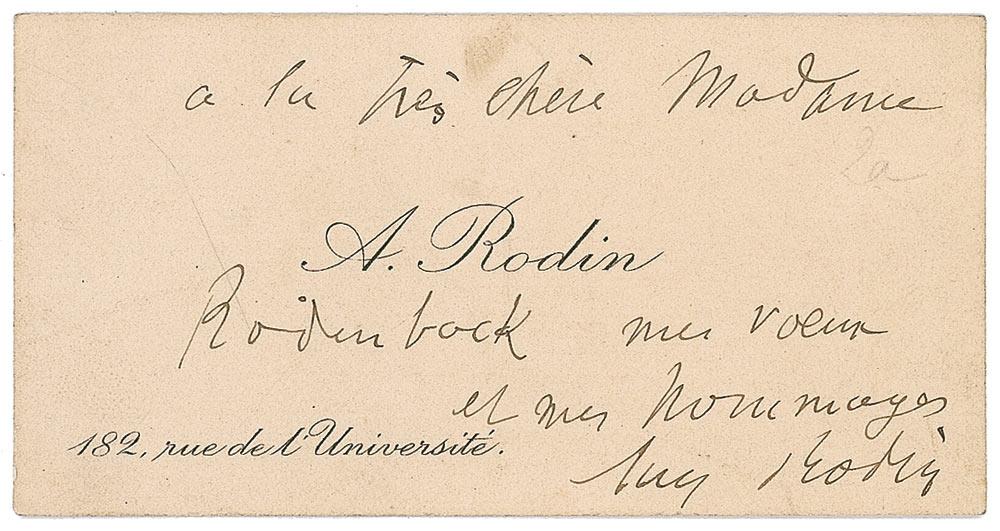 a la Très chère Madame
2a
A. Rodin
Rodenback mes voeux
et mes hommages
182, rue de l'Université.
Aug Rodin